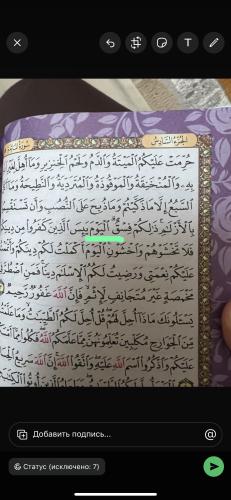 T
الجزء السادس
سورة المائدة
حُرِّمَتْ عَلَيْكُمُ ٱلْمَيْتَةُ وَٱلدَّمُ وَلَحْمُ ٱلْخِنزِيرِ وَمَآ أُهِلَّ لِغَيْرِ
بِهِۦ وَٱلْمُنْخَنِقَةُ وَٱلْمَوْقُوذَةُ وَٱلْمُتَرَدِّيَةُ وَٱلنَّطِيحَةُ وَمَآ أَكَلَ
ٱلسَّبُعُ إِلَّا مَا ذَكَّيْتُمْ وَمَا ذُبِحَ عَلَى ٱلنُّصُبِ وَأَن تَسْتَقْسِمُوا۟
بِٱلْأَزْلَٰمِ ذَٰلِكُمْ فِسْقٌ ٱلْيَوْمَ يَئِسَ ٱلَّذِينَ كَفَرُوا۟ مِن دِينِكُمْ
فَلَا تَخْشَوْهُمْ وَٱخْشَوْنِ ٱلْيَوْمَ أَكْمَلْتُ لَكُمْ دِينَكُمْ وَأَتْمَمْتُ
عَلَيْكُمْ نِعْمَتِى وَرَضِيتُ لَكُمُ ٱلْإِسْلَٰمَ دِينًا فَمَنِ ٱضْطُرَّ
مَخْمَصَةٍ غَيْرَ مُتَجَانِفٍ لِّإِثْمٍ فَإِنَّ ٱللَّهَ غَفُورٌ رَّحِيمٌ
يَسْـَٔلُونَكَ مَاذَآ أُحِلَّ لَهُمْ قُلْ أُحِلَّ لَكُمُ ٱلطَّيِّبَٰتُ وَمَا عَلَّمْتُم
مِّنَ ٱلْجَوَارِحِ مُكَلِّبِينَ تُعَلِّمُونَهُنَّ مِمَّا عَلَّمَكُمُ ٱللَّهُ فَكُلُوا۟ مِمَّآ
عَلَيْكُمْ وَٱذْكُرُوا۟ ٱسْمَ ٱللَّهِ عَلَيْهِ وَٱتَّقُوا۟ ٱللَّهَ إِنَّ ٱللَّهَ سَرِيعُ
Добавить подпись...
@
Статус (исключено: 7)